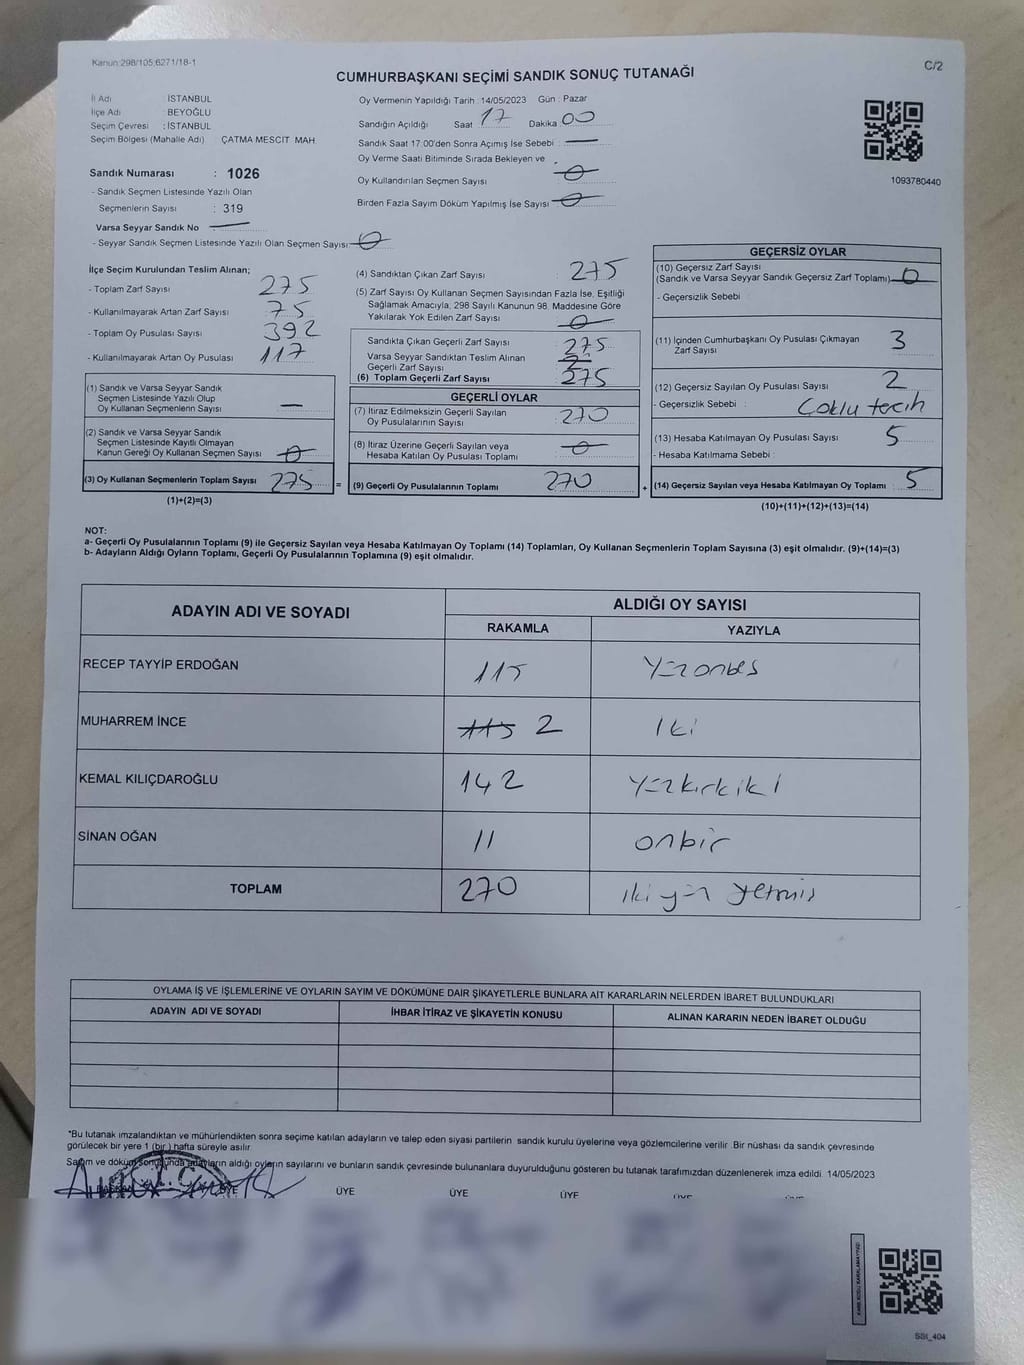 Kanun:298/105;6271/18-1
C/2
CUMHURBAŞKANI SEÇİMİ SANDIK SONUÇ TUTANAĞI
İl Adı : İSTANBUL
İlçe Adı : BEYOĞLU
Seçim Çevresi : İSTANBUL
Seçim Bölgesi (Mahalle Adı) ÇATMA MESCİT MAH.
Sandık Numarası : 1026
- Sandık Seçmen Listesinde Yazılı Olan
Seçmenlerin Sayısı : 319
Varsa Seyyar Sandık No
- Seyyar Sandık Seçmen Listesinde Yazılı Olan Seçmen Sayısı: 0
Oy Vermenin Yapıldığı Tarih : 14/05/2023 Gün : Pazar
Sandığın Açıldığı Saat 17 Dakika 00
Sandık Saat 17:00'den Sonra Açımış İse Sebebi :
Oy Verme Saati Bitiminde Sırada Bekleyen ve
Oy Kullandırılan Seçmen Sayısı 0
Birden Fazla Sayım Döküm Yapılmış İse Sayısı 0
1093780440
İlçe Seçim Kurulundan Teslim Alınan;
- Toplam Zarf Sayısı 275
- Kullanılmayarak Artan Zarf Sayısı 75
- Toplam Oy Pusulası Sayısı 392
- Kullanılmayarak Artan Oy Pusulası 117
(1) Sandık ve Varsa Seyyar Sandık
Seçmen Listesinde Yazılı Olup
Oy Kullanan Seçmenlerin Sayısı —
(2) Sandık ve Varsa Seyyar Sandık
Seçmen Listesinde Kayıtlı Olmayan
Kanun Gereği Oy Kullanan Seçmen Sayısı 0
(3) Oy Kullanan Seçmenlerin Toplam Sayısı 275 =
(1)+(2)=(3)
(4) Sandıktan Çıkan Zarf Sayısı 275
(5) Zarf Sayısı Oy Kullanan Seçmen Sayısından Fazla İse, Eşitliği
Sağlamak Amacıyla, 298 Sayılı Kanunun 98. Maddesine Göre
Yakılarak Yok Edilen Zarf Sayısı 0
Sandıkta Çıkan Geçerli Zarf Sayısı 275
Varsa Seyyar Sandıktan Teslim Alınan
Geçerli Zarf Sayısı
(6) Toplam Geçerli Zarf Sayısı 275
GEÇERLİ OYLAR
(7) İtiraz Edilmeksizin Geçerli Sayılan
Oy Pusulalarının Sayısı 270
(8) İtiraz Üzerine Geçerli Sayılan veya
Hesaba Katılan Oy Pusulası Toplamı 0
(9) Geçerli Oy Pusulalarının Toplamı 270 +
GEÇERSİZ OYLAR
(10) Geçersiz Zarf Sayısı
(Sandık ve Varsa Seyyar Sandık Geçersiz Zarf Toplamı) 0
- Geçersizlik Sebebi :
(11) İçinden Cumhurbaşkanı Oy Pusulası Çıkmayan
Zarf Sayısı 3
(12) Geçersiz Sayılan Oy Pusulası Sayısı 2
- Geçersizlik Sebebi : Çoklu tecih
(13) Hesaba Katılmayan Oy Pusulası Sayısı 5
- Hesaba Katılmama Sebebi :
(14) Geçersiz Sayılan veya Hesaba Katılmayan Oy Toplamı 5
(10)+(11)+(12)+(13)=(14)
NOT:
a- Geçerli Oy Pusulalarının Toplamı (9) ile Geçersiz Sayılan veya Hesaba Katılmayan Oy Toplamı (14) Toplamları, Oy Kullanan Seçmenlerin Toplam Sayısına (3) eşit olmalıdır. (9)+(14)=(3)
b- Adayların Aldığı Oyların Toplamı, Geçerli Oy Pusulalarının Toplamına (9) eşit olmalıdır.
ADAYIN ADI VE SOYADI
ALDIĞI OY SAYISI
RAKAMLA YAZIYLA
RECEP TAYYİP ERDOĞAN 115 Yüzonbeş
MUHARREM İNCE 115 2 İki
KEMAL KILIÇDAROĞLU 142 Yüzkırkiki
SİNAN OĞAN 11 onbir
TOPLAM 270 iki yüz yetmiş
OYLAMA İŞ VE İŞLEMLERİNE VE OYLARIN SAYIM VE DÖKÜMÜNE DAİR ŞİKAYETLERLE BUNLARA AİT KARARLARIN NELERDEN İBARET BULUNDUKLARI
ADAYIN ADI VE SOYADI İHBAR İTİRAZ VE ŞİKAYETİN KONUSU ALINAN KARARIN NEDEN İBARET OLDUĞU
"Bu tutanak imzalandıktan ve mühürlendikten sonra seçime katılan adayların ve talep eden siyasi partilerin sandık kurulu üyelerine veya gözlemcilerine verilir. Bir nüshası da sandık çevresinde
görülecek bir yere 1 (bir) hafta süreyle asılır.
Sayım ve döküm sonunda adayların aldığı oyların sayılarını ve bunların sandık çevresinde bulunanlara duyurulduğunu gösteren bu tutanak tarafımızdan düzenlenerek imza edildi. 14/05/2023
BAŞKAN ÜYE ÜYE ÜYE ÜYE ÜYE ÜYE
SSt_404